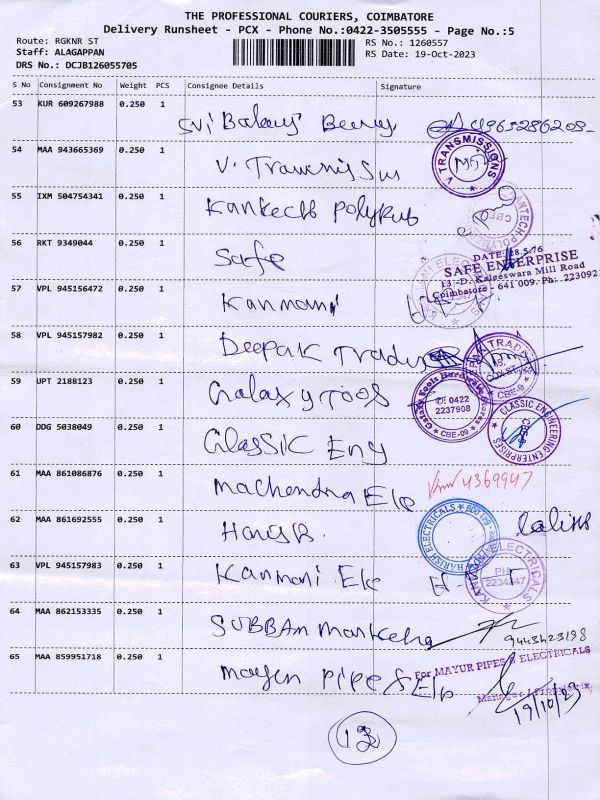 THE PROFESSIONAL COURIERS, COIMBATORE
Delivery Runsheet - PCX - Phone No.:0422-3505555 - Page No.:5
Route: RGKNR ST
Staff: ALAGAPPAN
DRS No.: DCJB126055705
RS No.: 1260557
RS Date: 19-Oct-2023
S No Consignment No Weight PCS Consignee Details Signature
53 KUR 609267988 0.250 1
Sri Balaji
54 MAA 943665369 0.250 1
V. V TRANSMISSIONS
55 IXM 504754341 0.250 1
56 RKT 9349044 0.250 1
Safe
SAFE ENTERPRISE
13 -D, Kaleeswara Mill Road
Coimbatore - 641 009. Ph: 223092
57 VPL 945156472 0.250 1
Kanmani
58 VPL 945157982 0.250 1
Deepak Traders
CBE-9
59 UPT 2188123 0.250 1
Galaxy Tools
Galaxy Tools Hardware Stores
✆: 0422
2237908
CBE-09
60 DDG 5038049 0.250 1
Classic Eng
CLASSIC ENGINEERING ENTERPRISES
61 MAA 861086876 0.250 1
Machendra Ele 4369947
62 MAA 861692555 0.250 1
Harish.
HARISH ELECTRICALS
63 VPL 945157983 0.250 1
Kanmani Ele
ELECTRICALS
PH:
2234347
64 MAA 862153335 0.250 1
SUBBAM Marketing
9443423198
65 MAA 859951718 0.250 1
Mayur Pipe & Ele
For MAYUR PIPES & ELECTRICALS
19/10/23
13